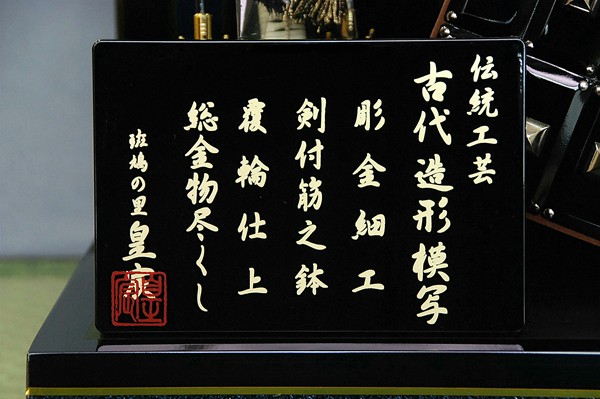 伝統工芸
古代造形模写
彫金細工
剣付筋之鉢
覆輪仕上
総金物尽くし
斑鳩の里 皇